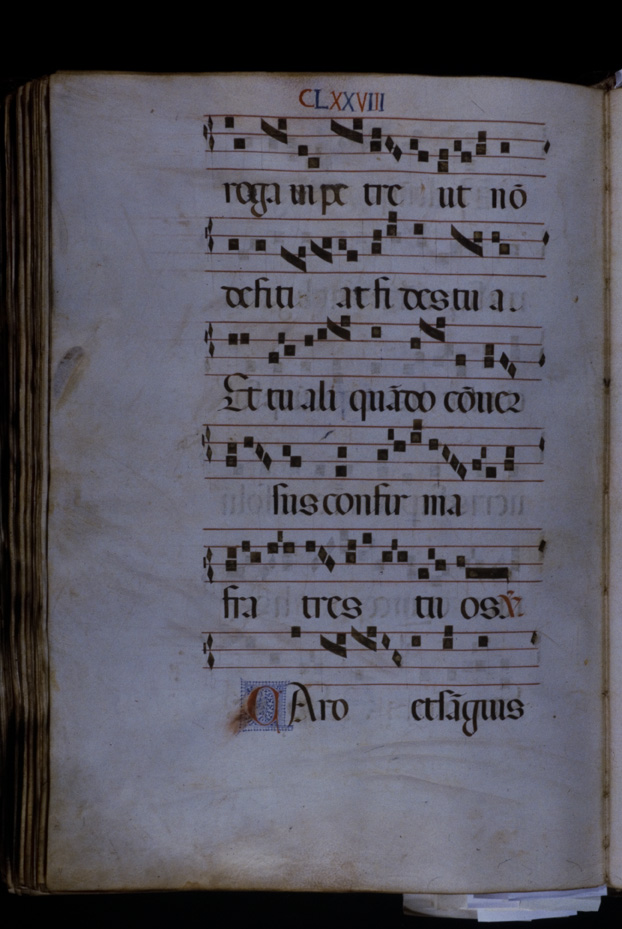 CLXXVIII
roga ui pe tre ut nō
defiti at fi des tu a.
Et tu ali quādo cōuer
sus confir ma
fra tres tu os.
CAro et sāguis